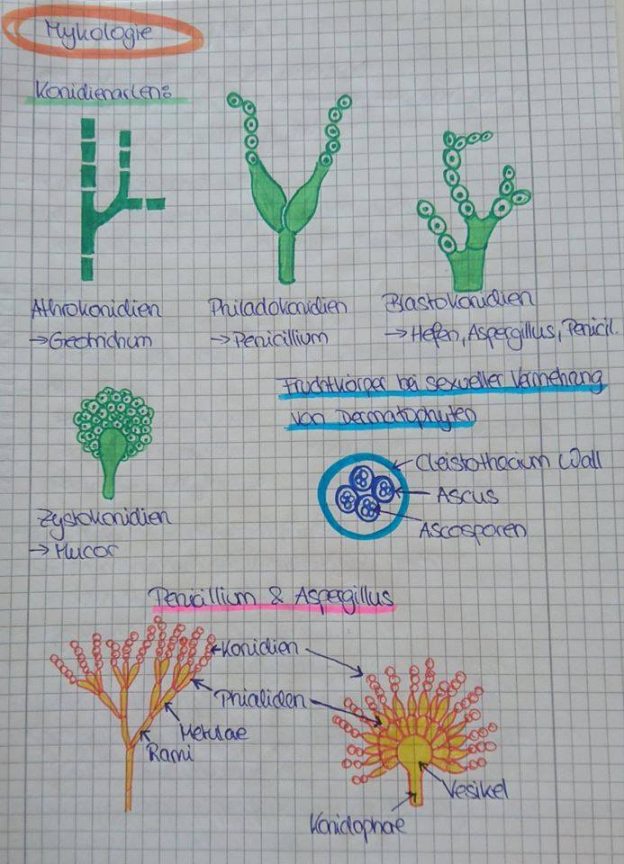 Mykologie
Konidienarten:
Athrokonidien
→ Geotrichum
Philadokonidien
→ Penicillium
Blastokonidien
→ Hefen, Aspergillus, Penicil.
Zystokonidien
→ Mucor
Fruchtkörper bei sexueller Vermehrung
von Dermatophyten
Cleistothecium Wall
Ascus
Ascosporen
Penicillium & Aspergillus
Konidien
Phialiden
Metulae
Rami
Vesikel
Konidophore